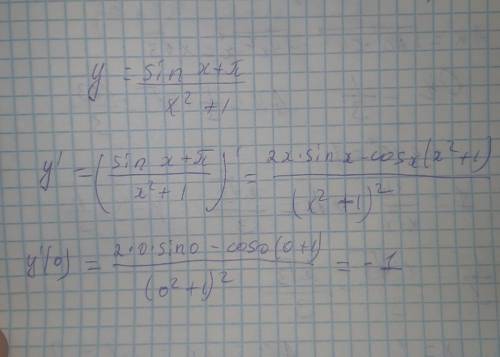 y = (sin x+π)/(x² + 1)
y' = ((sin x+π)/(x² + 1))' = (2x·sin x - cos x(x²+1))/(x² + 1)²
y'(0) = (2·0·sin 0 - cos 0(0+1))/(0²+1)² = -1